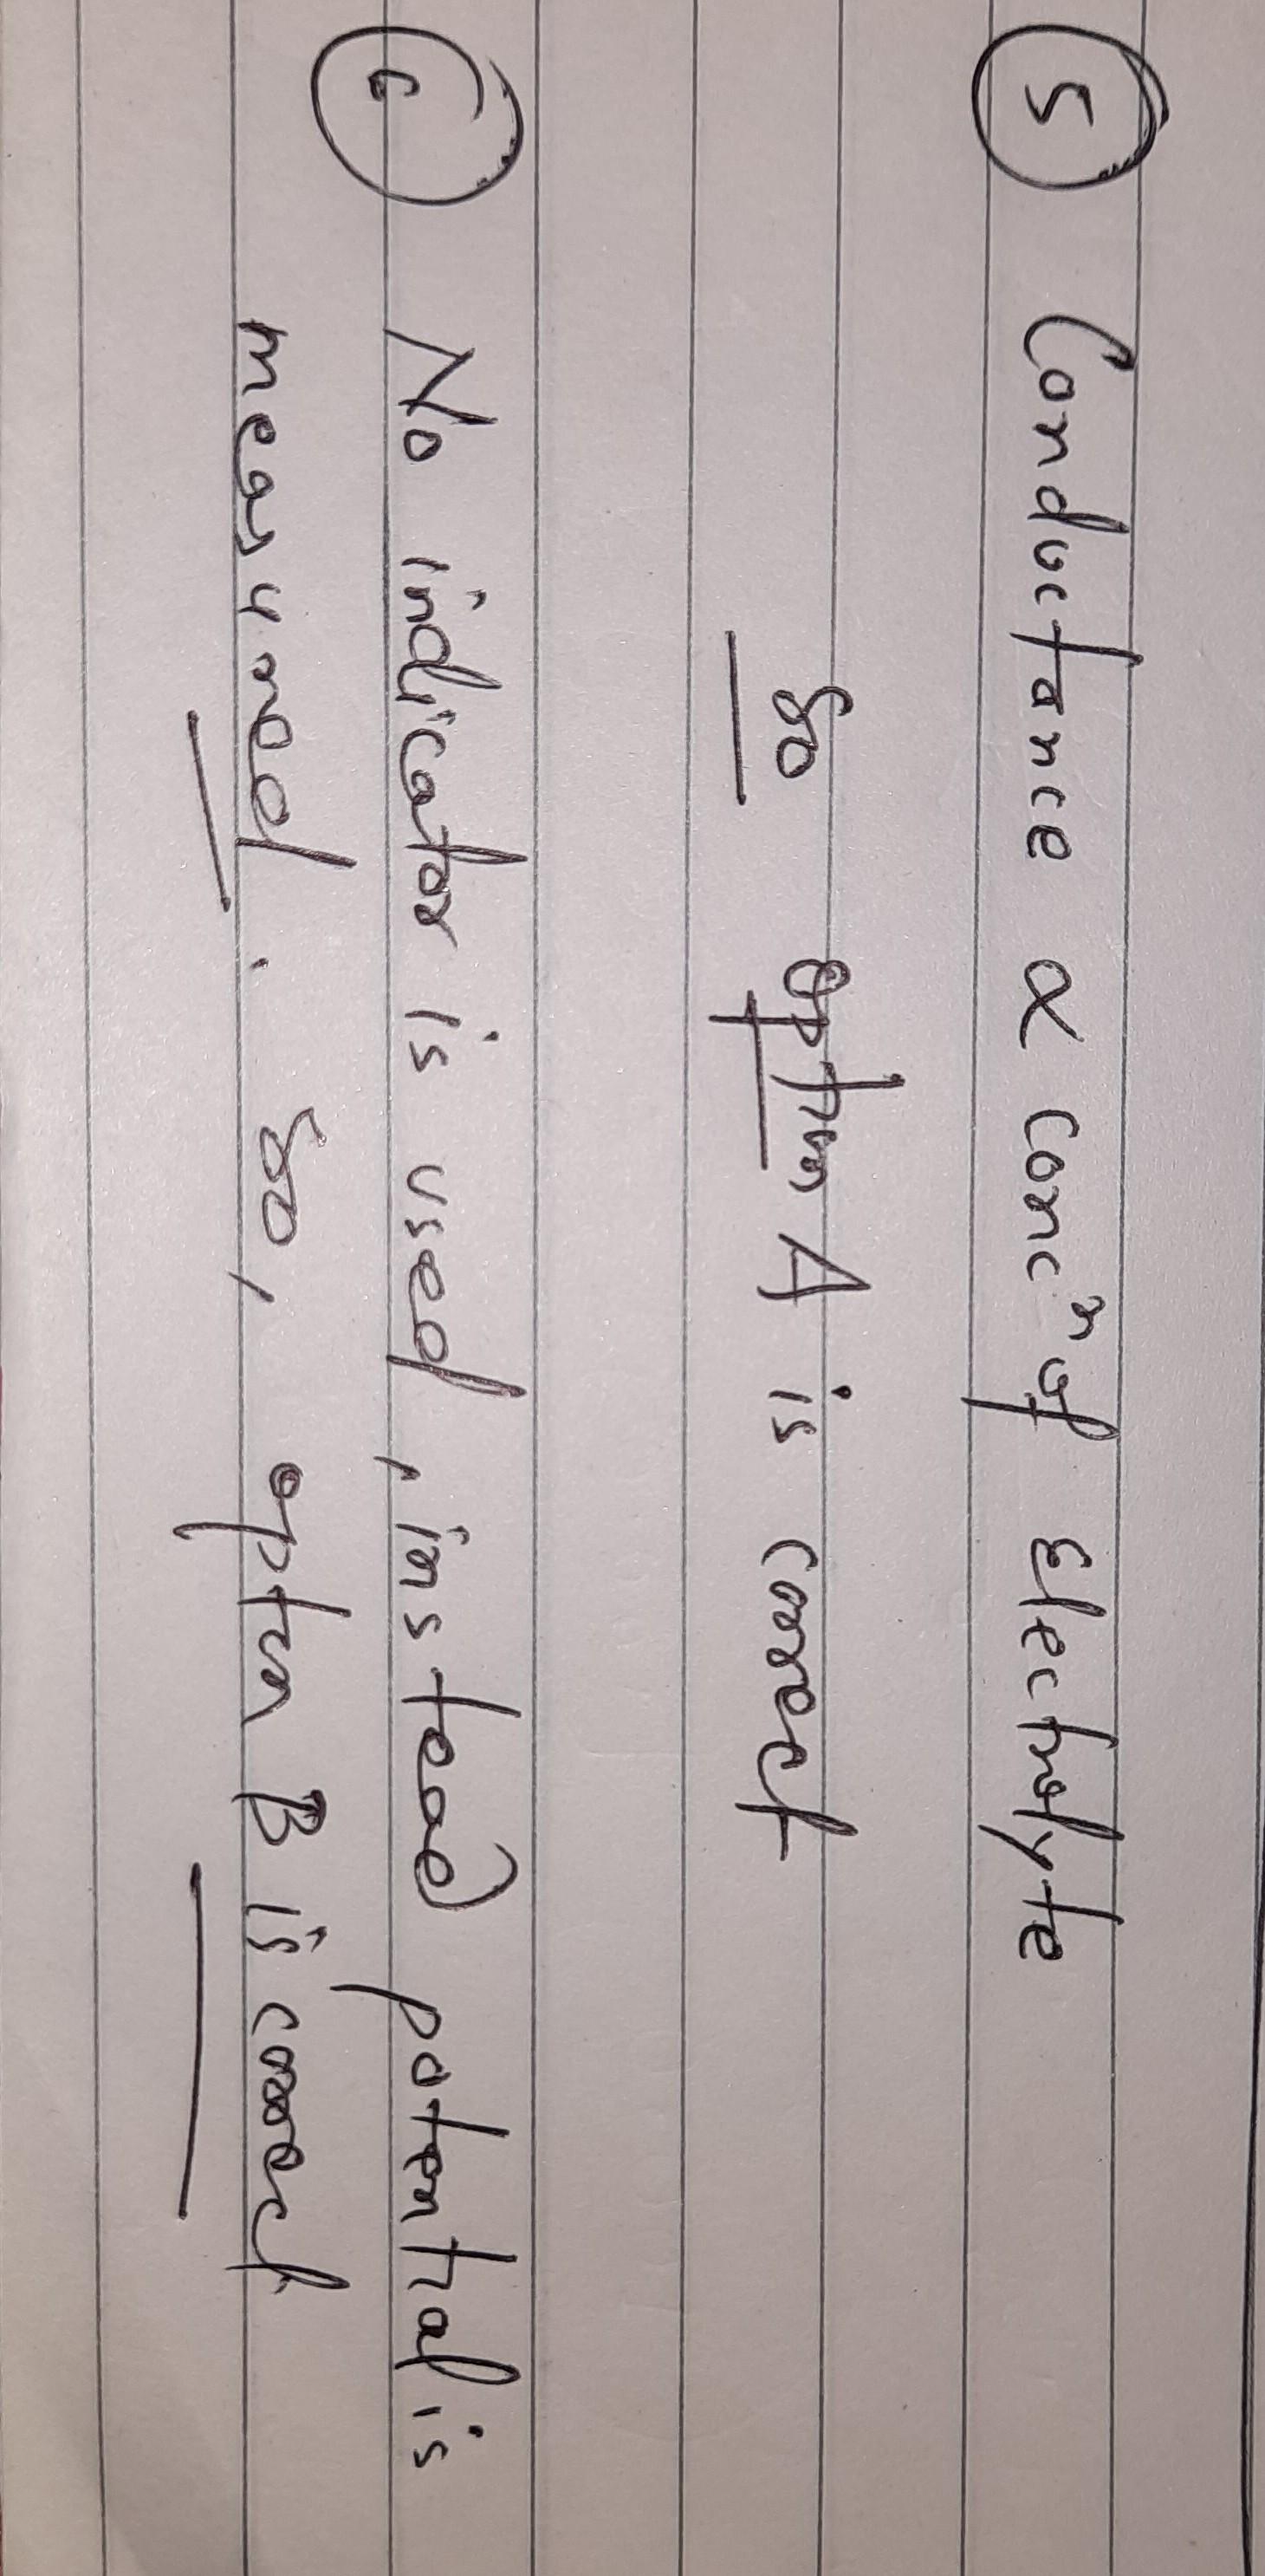 5 Conductance α concⁿ of Electrolyte
So option A is correct
6 No indicator is used, instead potential is
measured. So, option B is correct